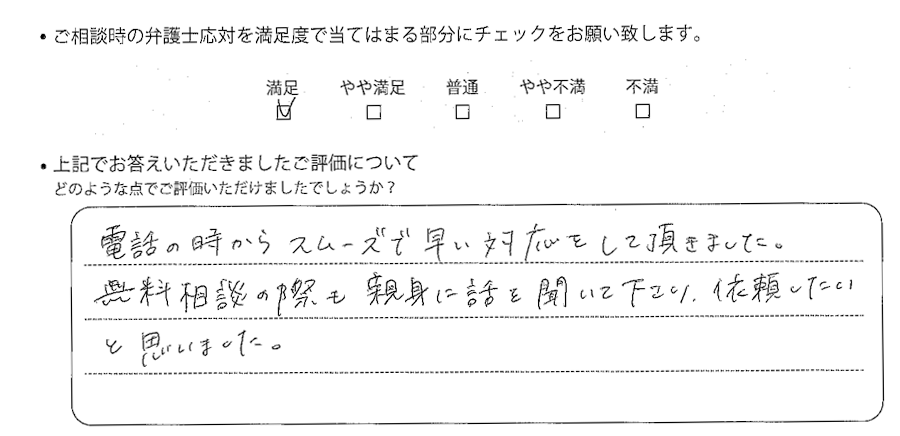 • ご相談時の弁護士応対を満足度で当てはまる部分にチェックをお願い致します。
満足 やや満足 普通 やや不満 不満
☑ □ □ □ □
• 上記でお答えいただきましたご評価について
どのような点でご評価いただけましたでしょうか？
電話の時からスムーズで早い対応をして頂きました。
無料相談の際も親身に話を聞いて下さり、依頼したい
と思いました。